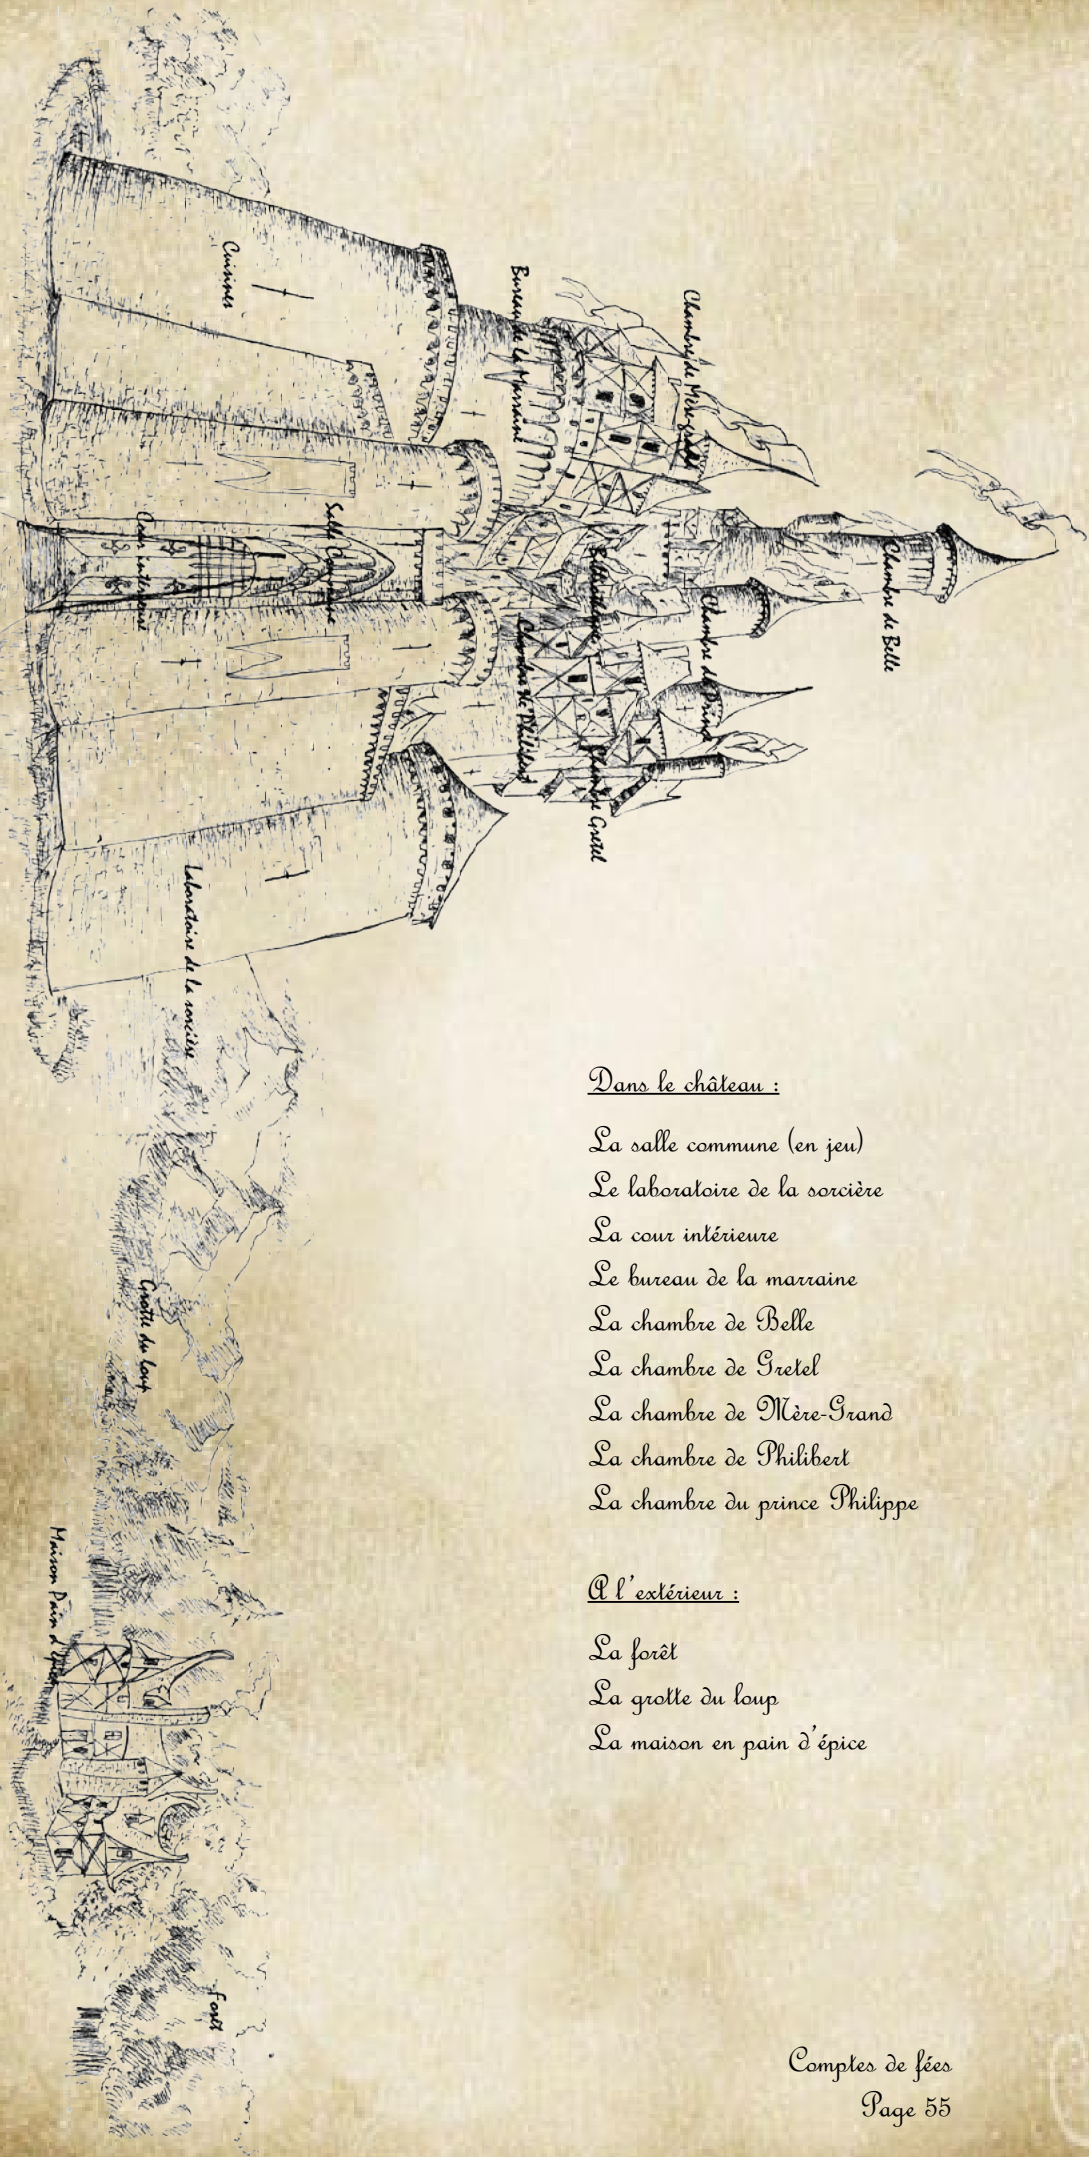 Cuisines
Bureau de la Marraine
Chambre de Mère-grand
Chambre de Belle
Cour intérieure
Salle Commune
Bibliothèque
Chambre du Prince
Chambre de Philibert
Chambre Gretel
Laboratoire de la sorcière
Grotte du loup
Maison Pain d'épice
Forêt
Dans le château :
La salle commune (en jeu)
Le laboratoire de la sorcière
La cour intérieure
Le bureau de la marraine
La chambre de Belle
La chambre de Gretel
La chambre de Mère-Grand
La chambre de Philibert
La chambre du prince Philippe
A l'extérieur :
La forêt
La grotte du loup
La maison en pain d'épice
Comptes de fées
Page 55